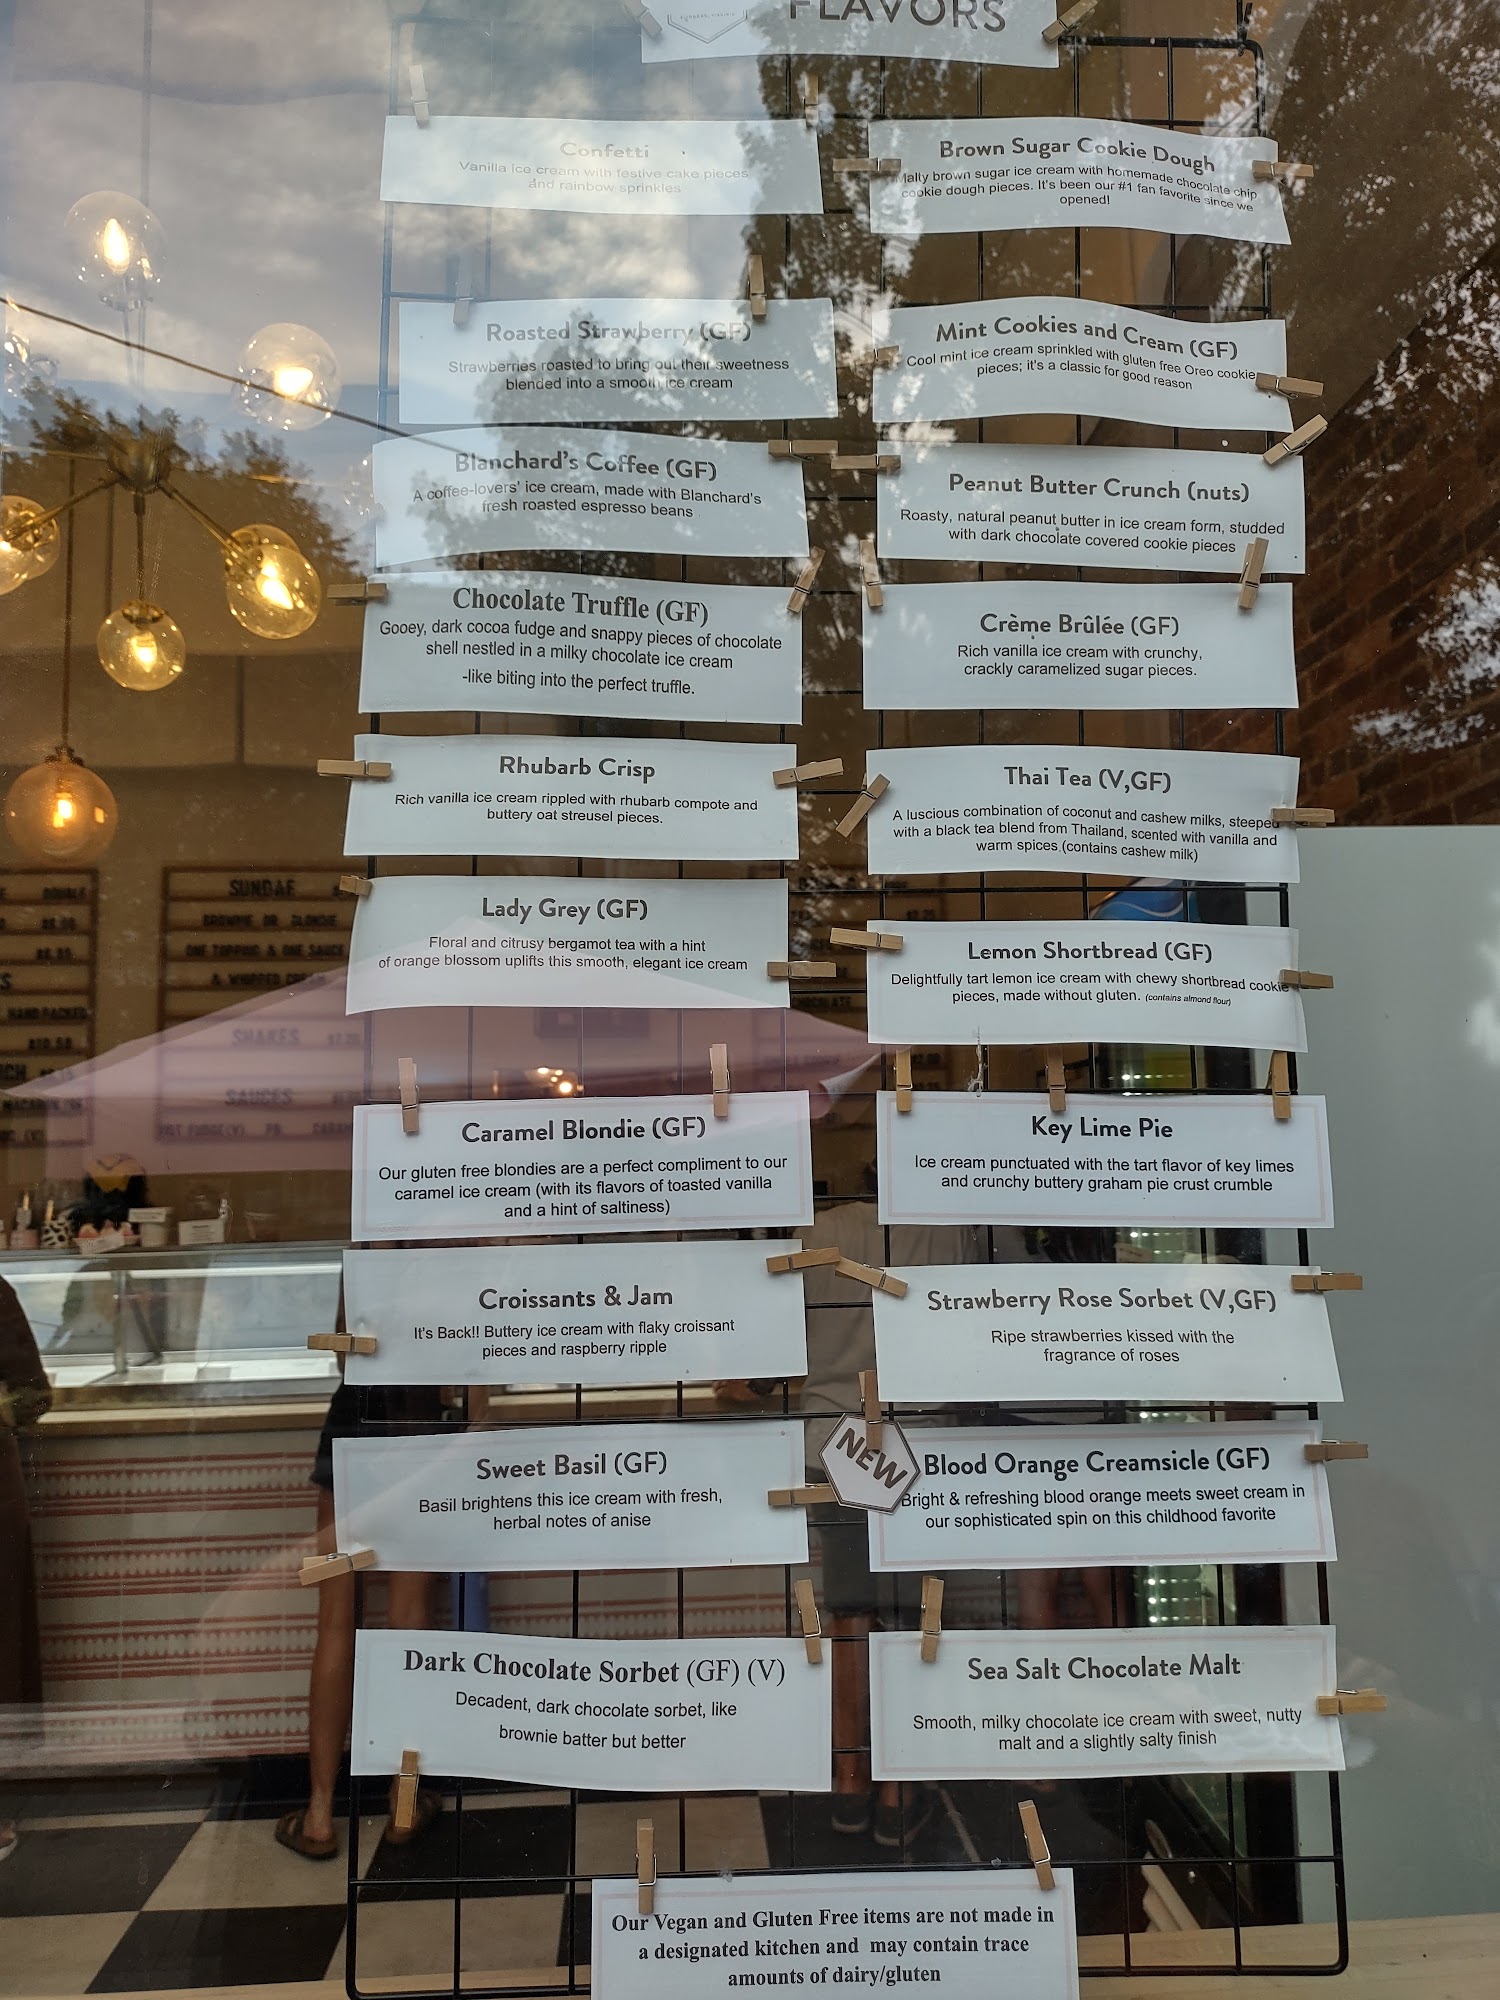 FLAVORS
Confetti
Vanilla ice cream with festive cake pieces
and rainbow sprinkles
Roasted Strawberry (GF)
Strawberries roasted to bring out their sweetness
blended into a smooth ice cream
Blanchard's Coffee (GF)
A coffee-lovers' ice cream, made with Blanchard's
fresh roasted espresso beans
Chocolate Truffle (GF)
Gooey, dark cocoa fudge and snappy pieces of chocolate
shell nestled in a milky chocolate ice cream
-like biting into the perfect truffle.
Rhubarb Crisp
Rich vanilla ice cream rippled with rhubarb compote and
buttery oat streusel pieces.
Lady Grey (GF)
Floral and citrusy bergamot tea with a hint
of orange blossom uplifts this smooth, elegant ice cream
Caramel Blondie (GF)
Our gluten free blondies are a perfect compliment to our
caramel ice cream (with its flavors of toasted vanilla
and a hint of saltiness)
Croissants & Jam
It's Back!! Buttery ice cream with flaky croissant
pieces and raspberry ripple
Sweet Basil (GF)
Basil brightens this ice cream with fresh,
herbal notes of anise
Dark Chocolate Sorbet (GF) (V)
Decadent, dark chocolate sorbet, like
brownie batter but better
Brown Sugar Cookie Dough
Malty brown sugar ice cream with homemade chocolate chip
cookie dough pieces. It's been our #1 fan favorite since we
opened!
Mint Cookies and Cream (GF)
Cool mint ice cream sprinkled with gluten free Oreo cookie
pieces; it's a classic for good reason
Peanut Butter Crunch (nuts)
Roasty, natural peanut butter in ice cream form, studded
with dark chocolate covered cookie pieces
Crème Brûlée (GF)
Rich vanilla ice cream with crunchy,
crackly caramelized sugar pieces.
Thai Tea (V,GF)
A luscious combination of coconut and cashew milks, steeped
with a black tea blend from Thailand, scented with vanilla and
warm spices.(contains cashew milk)
Lemon Shortbread (GF)
Delightfully tart lemon ice cream with chewy shortbread cookie
pieces, made without gluten. (contains almond flour)
Key Lime Pie
Ice cream punctuated with the tart flavor of key limes
and crunchy buttery graham pie crust crumble
Strawberry Rose Sorbet (V,GF)
Ripe strawberries kissed with the
fragrance of roses
NEW
Blood Orange Creamsicle (GF)
Bright & refreshing blood orange meets sweet cream in
our sophisticated spin on this childhood favorite
Sea Salt Chocolate Malt
Smooth, milky chocolate ice cream with sweet, nutty
malt and a slightly salty finish
Our Vegan and Gluten Free items are not made in
a designated kitchen and may contain trace
amounts of dairy/gluten
SUNDAE
BROWNIE OR BLONDIE
ONE TOPPING & ONE SAUCE
& WHIPPED
SHAKES
SAUCES
HAND PACKED